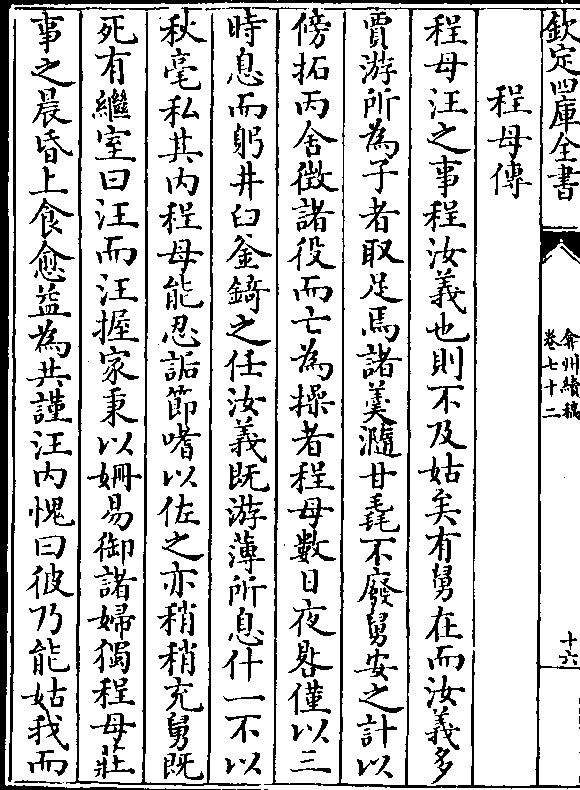 欽定四庫全書
弇州續稿
卷七十二
十六
程母傳
程母汪之事程汝義也則不及姑矣有舅在而汝義多
賈游所為子者取足焉諸羮瀡甘毳不廢舅安之計以
傍拓丙舍徴諸役而亡為操者程母數日夜晷僅以三
時息而躬井臼釜錡之任汝義既游薄所息什一不以
秋毫私其内程母能忍詬節嗜以佐之亦稍稍充舅既
死有繼室曰汪而汪握家秉以姍易御諸婦獨程母莊
事之晨昏上食愈益為共謹汪内愧曰彼乃能姑我而